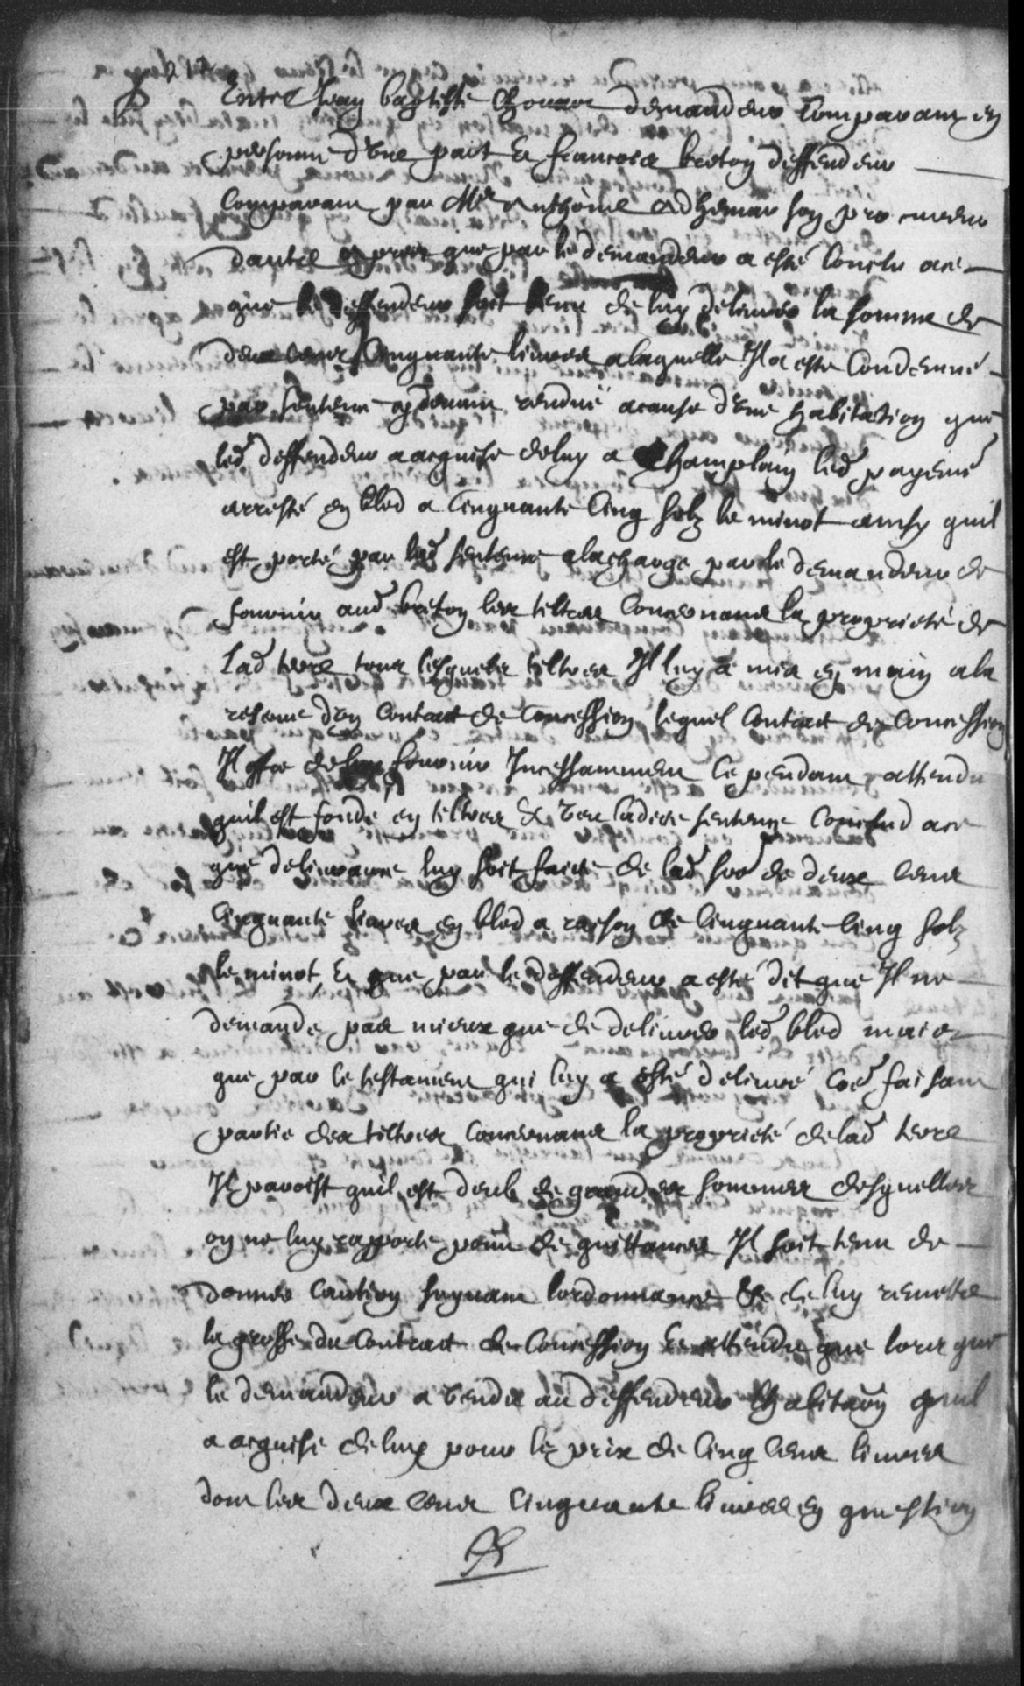 Entre Jean baptiste Chouart demandeur Comparant en
personne d'Une part Et francois breton deffendeur
Comparant par Me Anthoine Adhemar son procureur
dautre apres que par le demandeur a esté Conclu ace
que le deffendeur soit tenu de luy delivrer la somme de
deux Cens Cinquante livres alaquelle Il a esté Condemné
par sentence rendue acause d'Une habitation que
led deffendeur a acquise deluy a Champlain led payemt
arresté en bled a Cinquante Cinq solz le minot ainsy quil
est porté par lad sentence alacharge par le demandeur de
fournir aud breton les tiltres Concernans la proprieté de
Lad terre tous lesquels tiltres Il luy a mis en main ala
reserve d'un Contract de Concession lequel Contract de Concession
Il offre de luy fournir Incessamment Cependant attendu
quil est fondé en tiltres Et Veu ladite sentence Conclud ace
que delivrance luy soit faicte de lad so֮e de deux Cens
Cinquante livres en bled a raison de Cinquante Cinq solz
le minot, Et que par le deffendeur a esté dit que Il ne
demande pas mieux que de delivrer led bled mais
que par le testament qui luy a esté delivré Co֮e faisant
partie des tiltres Concernans la proprieté delad terre
Il paroist quil est deub de grandes sommes desquelles
on ne luy rapporte point de quittances Il soit tenu de
donner Caution suyvant lordonnance Et de luy remettre
la grosse du Contract de Concession Et attendu que lors que
le demandeur a Vendu au deffendeur lhabitaōn quil
a acquise deluy pour le prix de Cinq Cens livres
dont les deux Cens Cinquante livres en question